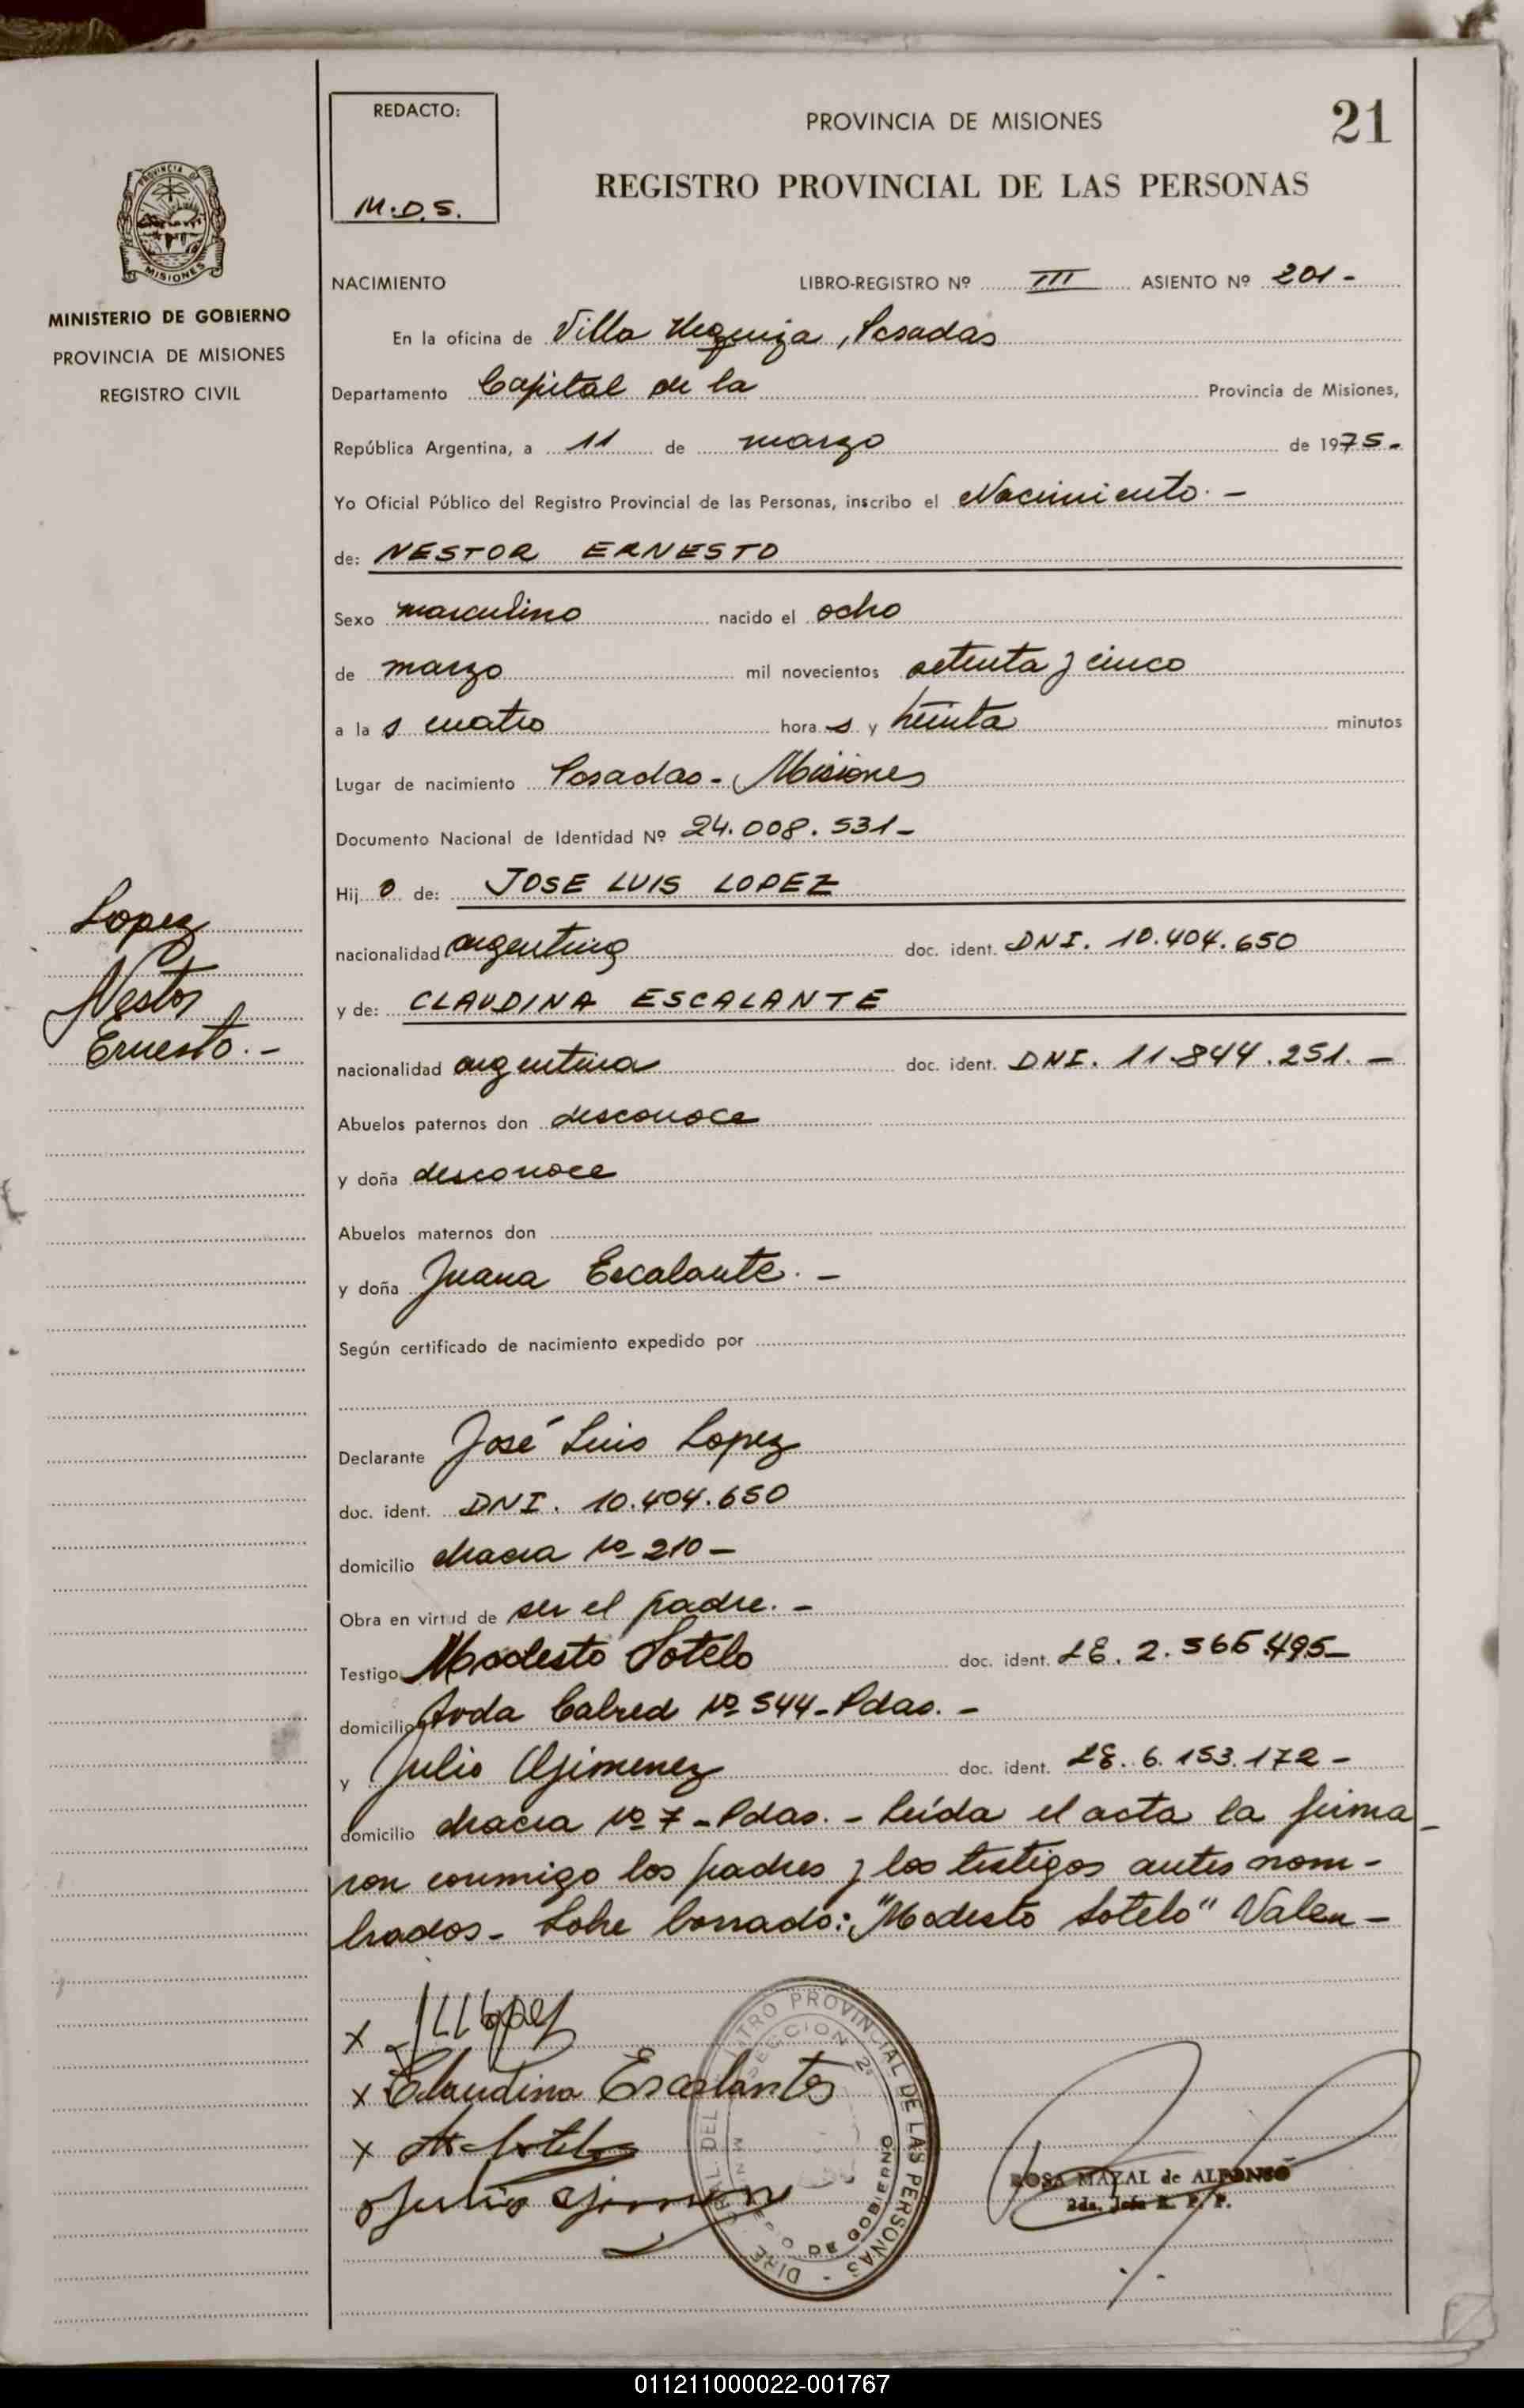 REDACTO:
M.D.S.
PROVINCIA DE MISIONES
21
REGISTRO PROVINCIAL DE LAS PERSONAS
MISIONES
MINISTERIO DE GOBIERNO
PROVINCIA DE MISIONES
REGISTRO CIVIL
NACIMIENTO LIBRO-REGISTRO Nº III ASIENTO Nº 201-
En la oficina de Villa Urquiza, Posadas
Departamento Capital de la Provincia de Misiones,
República Argentina, a 11 de marzo de 1975-
Yo Oficial Público del Registro Provincial de las Personas, inscribo el Nacimiento.-
de: NESTOR ERNESTO
Sexo masculino nacido el ocho
de marzo mil novecientos setenta y cinco
a las cuatro horas y treinta minutos
Lugar de nacimiento Posadas-Misiones
Documento Nacional de Identidad Nº 24.008.531-
Hijo de: JOSE LUIS LOPEZ
Lopez
Nestor
Ernesto.-
nacionalidad argentina doc. ident. DNI. 10.404.650
y de: CLAUDINA ESCALANTE
nacionalidad argentina doc. ident. DNI. 11.844.251.-
Abuelos paternos don desconoce
y doña desconoce
Abuelos maternos don
y doña Juana Escalante.-
Según certificado de nacimiento expedido por
Declarante José Luis Lopez
doc. ident. DNI. 10.404.650
domicilio chacra Nº 210-
Obra en virtud de ser el padre.-
Testigo Modesto Sotelo doc. ident. LE. 2.565.495-
domicilio Avda Cabred Nº 544-Pdas.-
y Julio Gimenez doc. ident. LE. 6.153.172-
domicilio chacra Nº 7-Pdas.- Leída el acta la firma-
ron conmigo los padres y los testigos antes nom-
brados- Sobre borrado: "Modesto Sotelo" Valen-
x JLLopez
x Claudina Escalante
x Sotelo
Julio Gimenez
PROVINCIAL DE LAS PERSONAS
SECCION 2ª
DE GOBIERNO
ROSA MAZAL de ALFONSO
2da. Jefa R. P. P.
011211000022-001767